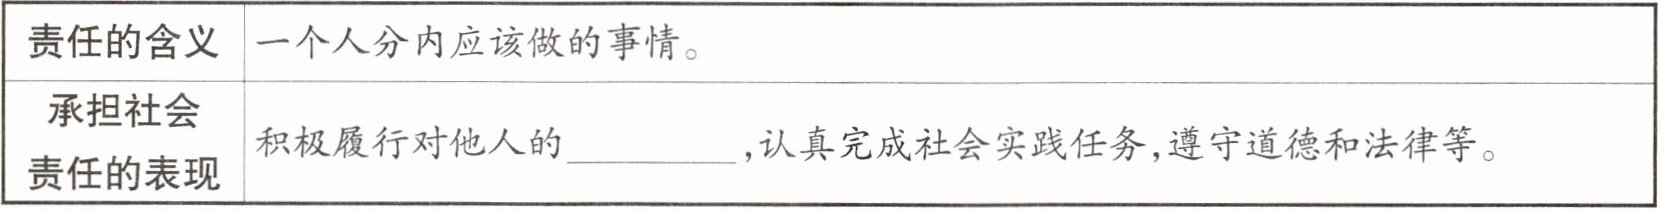 责任的含义 一个人分内应该做的事情。
承担社会
责任的表现 积极履行对他人的________,认真完成社会实践任务,遵守道德和法律等。